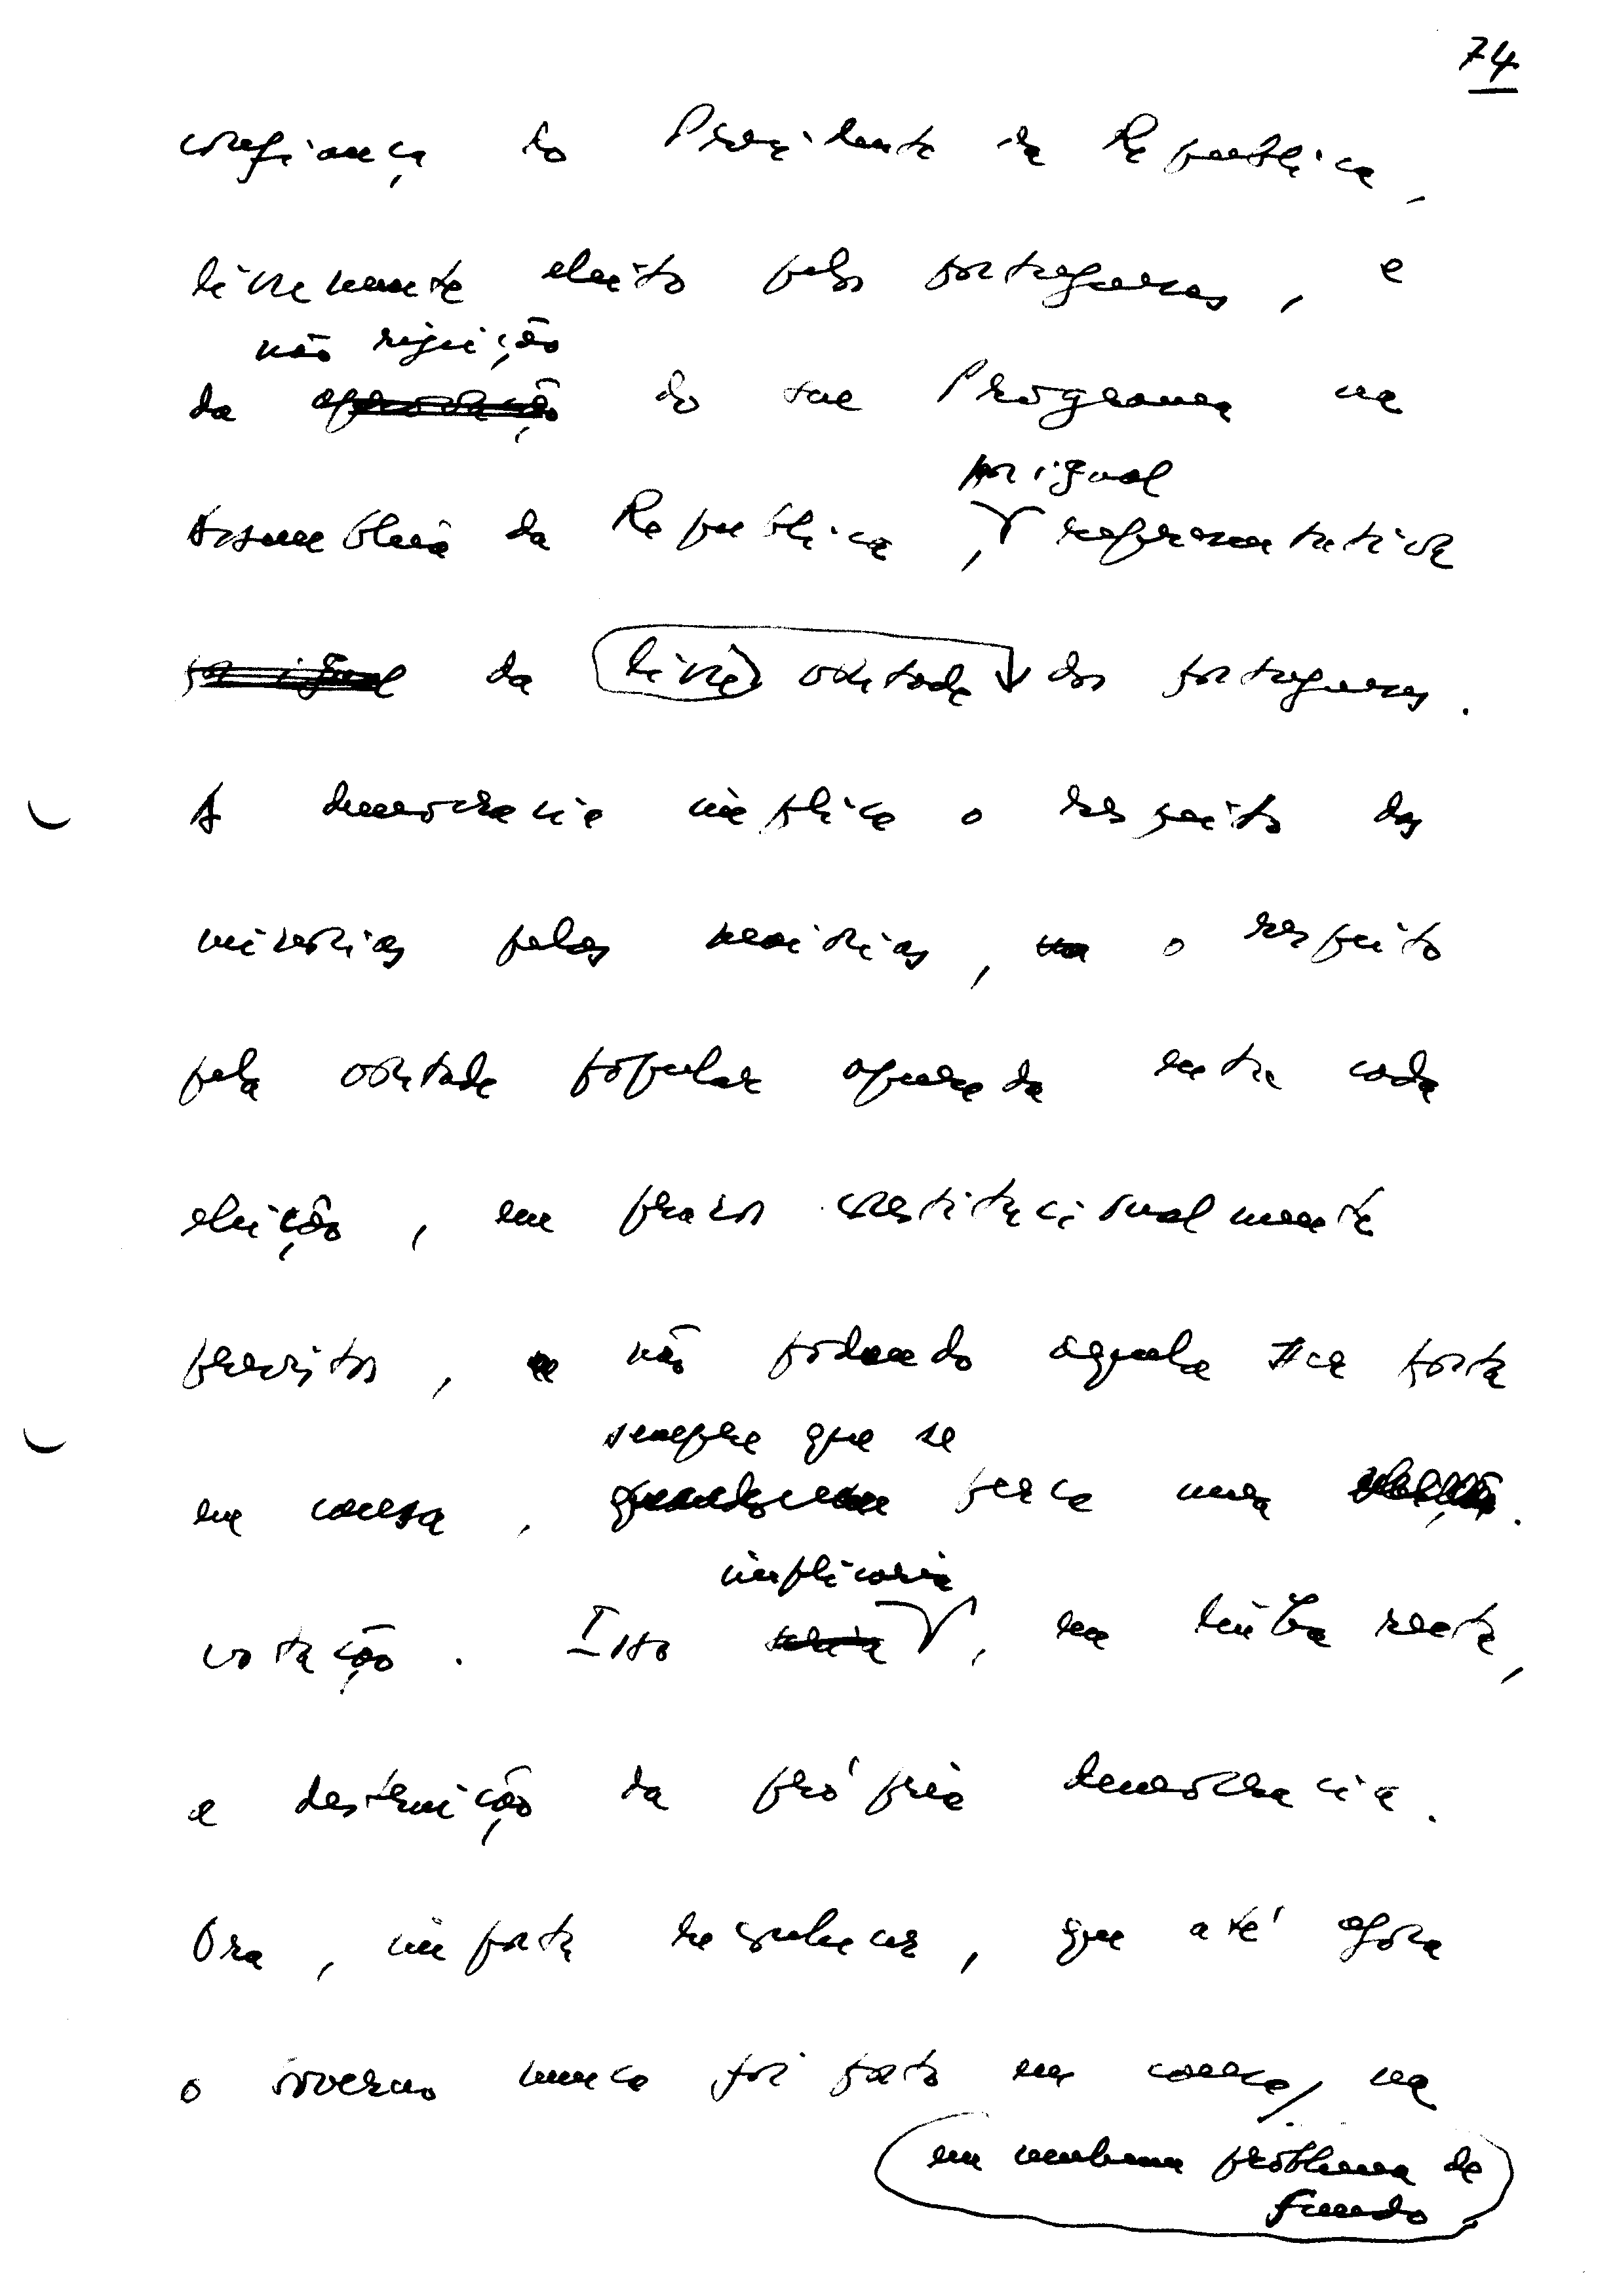 74
confiança do Presidente da República,
livremente eleito pelos portugueses, e
não rejeição
da aprovação do seu Programa na
por igual
Assembleia da República, representativa
por igual da livre vontade dos portugueses.
A democracia implica o respeito das
minorias pelas maiorias, o respeito
pela vontade popular apurada entre cada
eleição, em prazos constitucionalmente
previstos, e não podendo aquela ser posta
sempre que se
em causa, perca uma
implicaria
votação. Isso seria, em linha recta,
a destruição da própria democracia.
Ora, importa reconhecer, que até agora
o Governo nunca foi posto em causa, na
em nenhum problema de
fundo.